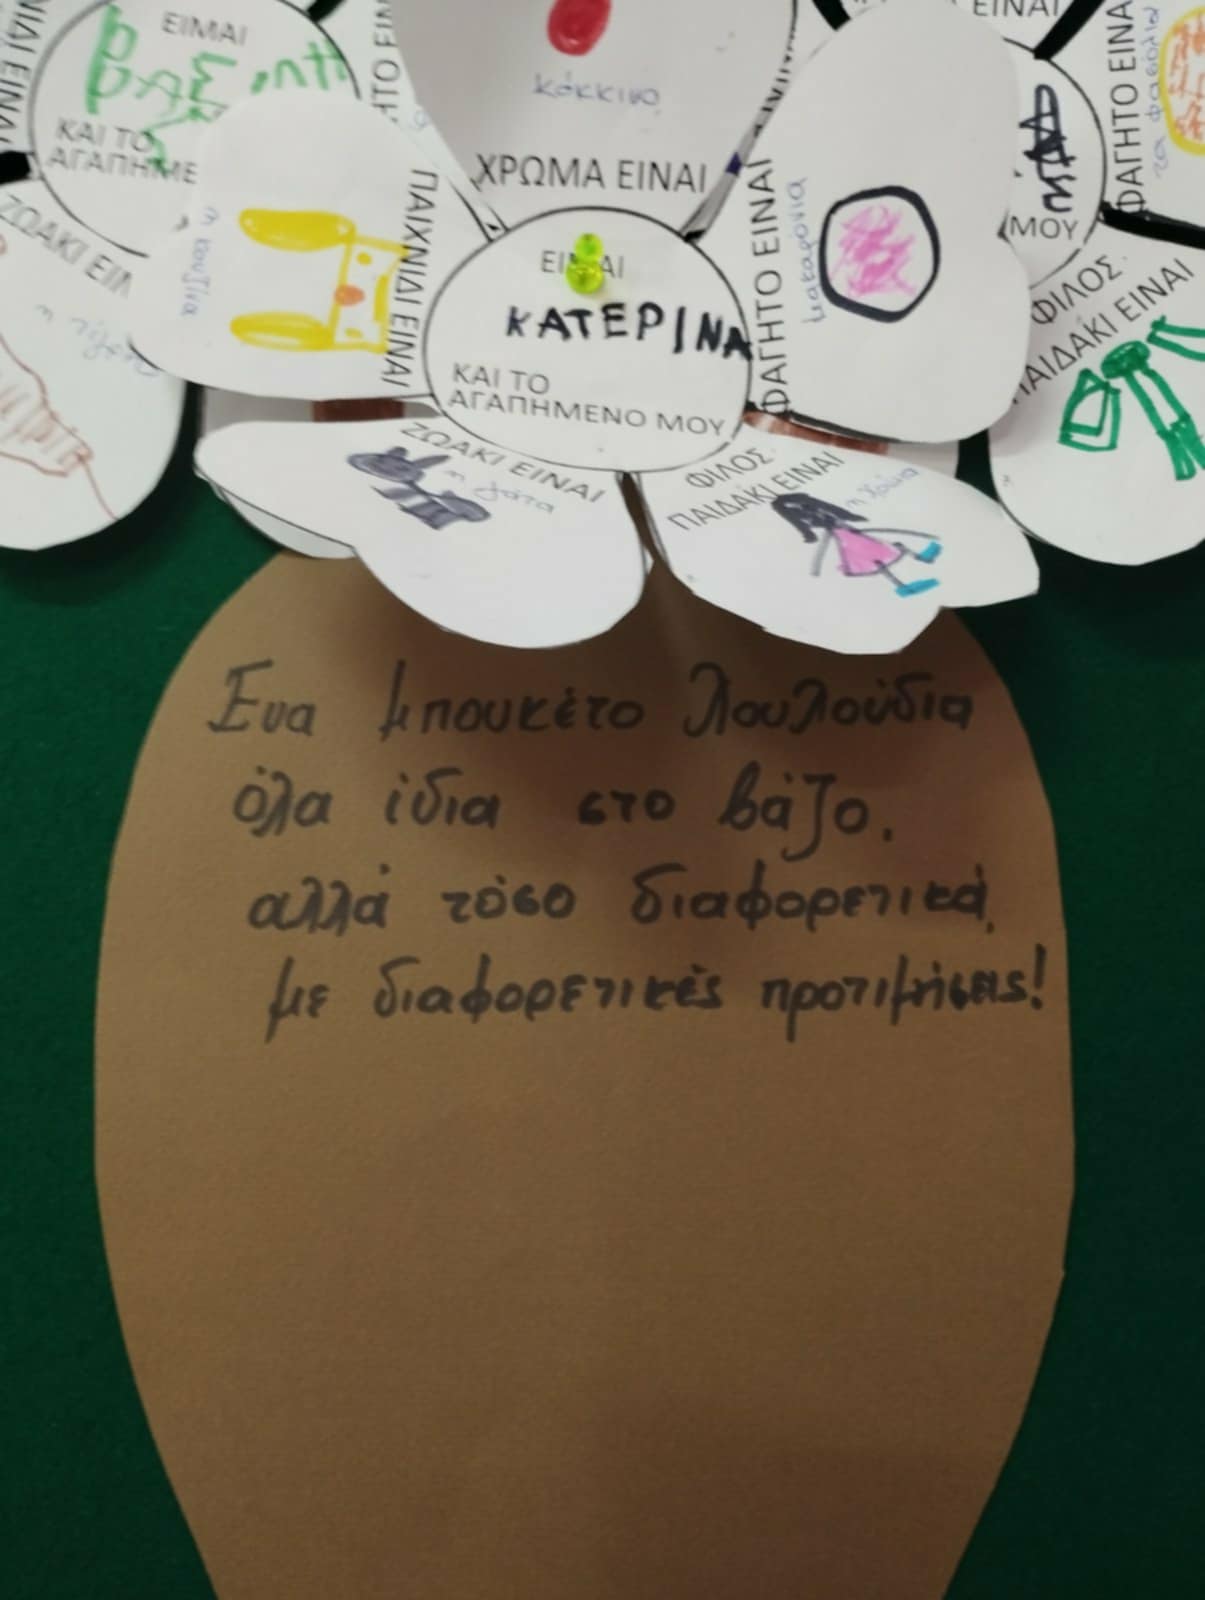 ΕΙΜΑΙ
ΚΑΙ ΤΟ
ΑΓΑΠΗΜΕ
ΖΩΑΚΙ ΕΙΝ
κόκκινο
ΧΡΩΜΑ ΕΙΝΑΙ
η κουζίνα
ΠΑΙΧΝΙΔΙ ΕΙΝΑΙ
ΕΙΜΑΙ
ΚΑΤΕΡΙΝΑ
ΚΑΙ ΤΟ
ΑΓΑΠΗΜΕΝΟ ΜΟΥ
ΦΑΓΗΤΟ ΕΙΝΑΙ
μακαρόνια
ΖΩΑΚΙ ΕΙΝΑΙ
η γάτα
ΦΙΛΟΣ.
ΠΑΙΔΑΚΙ ΕΙΝΑΙ
ΕΙΝΑΙ
ΜΟΥ
ΦΑΓΗΤΟ ΕΙΝΑ
τα φασόλια
ΦΙΛΟΣ.
ΠΑΙΔΑΚΙ ΕΙΝΑΙ
Ένα μπουκέτο λουλούδια
όλα ίδια στο βάζο,
αλλά τόσο διαφορετικά,
με διαφορετικές προτιμήσεις!